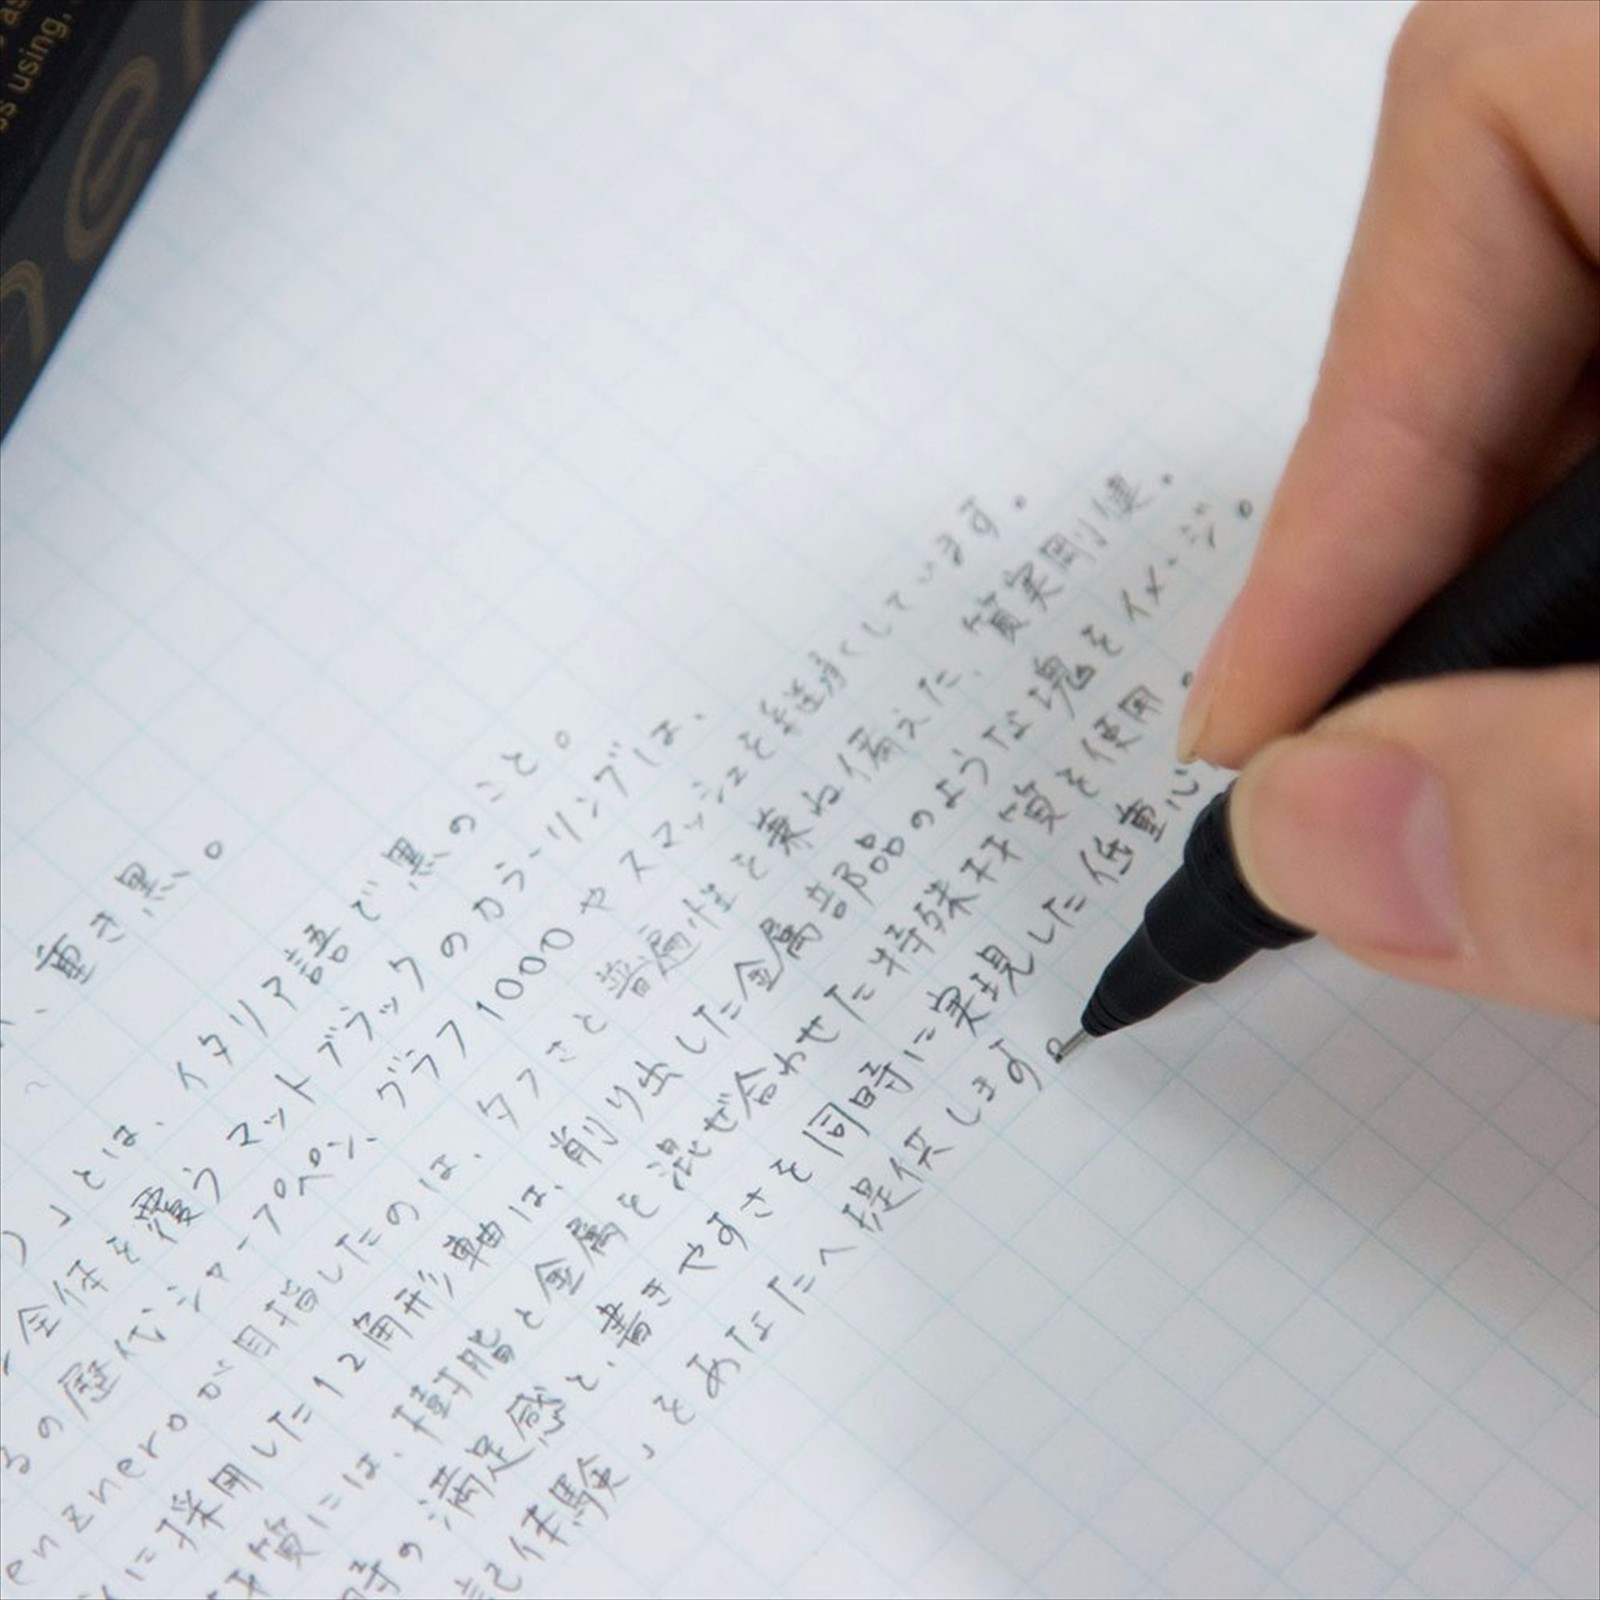 ss using,
、重き黒。
」とは、イタリア語で黒のこと。
全体を覆うマットブラックのカラーリングは、
るの歴代シャープペン、グラフ1000やスマッシュを
しています。
enzneroが目指したのは、タフさと普遍性を兼ね備えた、質実剛健。
に採用した12角形軸は、削り出した金属部品のような塊をイメージ。
材質には、樹脂と金属を混ぜ合わせた特殊材質を使用。
時の満足感と、書きやすさを同時に実現した低重心
記体験」をあなたへ提供します。